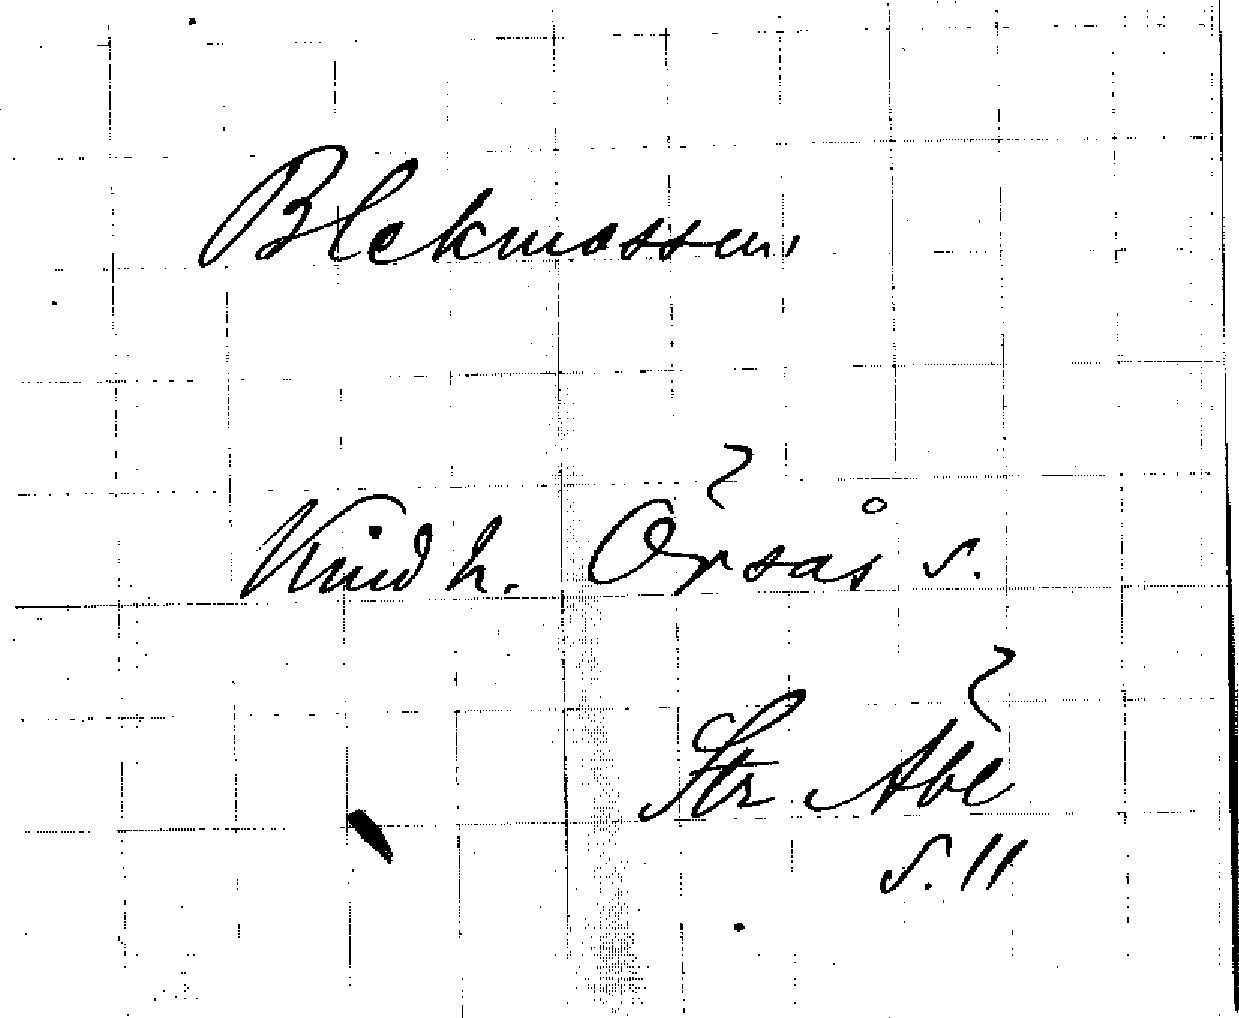 Blekmossen,
Kind h. Örsås s.
Str Åbe
s. 11